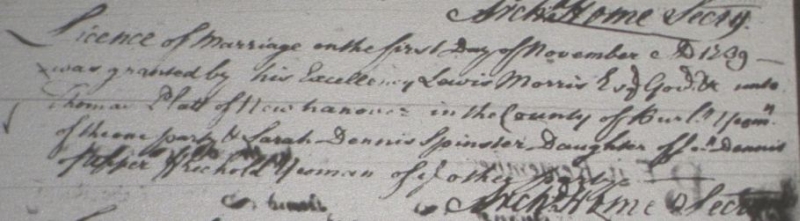 Archd Home Secry.
Licence of Marriage on the first Day of November AD 1739
was granted by his Excellency Lewis Morris Esqr Govr &c unto
Thomas Platt of New hanover in the County of Burln Yeomn
of the one party & Sarah Dennis Spinster Daughter of Dennis
of Yeoman of ye other party
Archd Home Secry